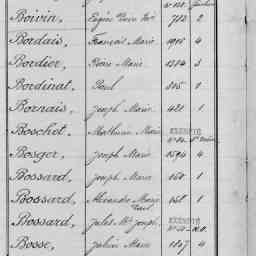 Boivin, Eugène Pierre 713 2
Bordais, François Marie 1905 4
Bordier, Pierre Marie 1304 3
Bordinat, Paul 805 1
Bornais, Joseph Marie 421 1
Boschet, Mathurin Marie EXEMPTÉ
Bosger, Joseph Marie 1594 4
Bossard, Joseph Marie 160 1
Bossard, Alexandre Marie 168 1
Paul
Bossard, Jules Joseph EXEMPTÉ
Bosse, Julien Marie 1807 4